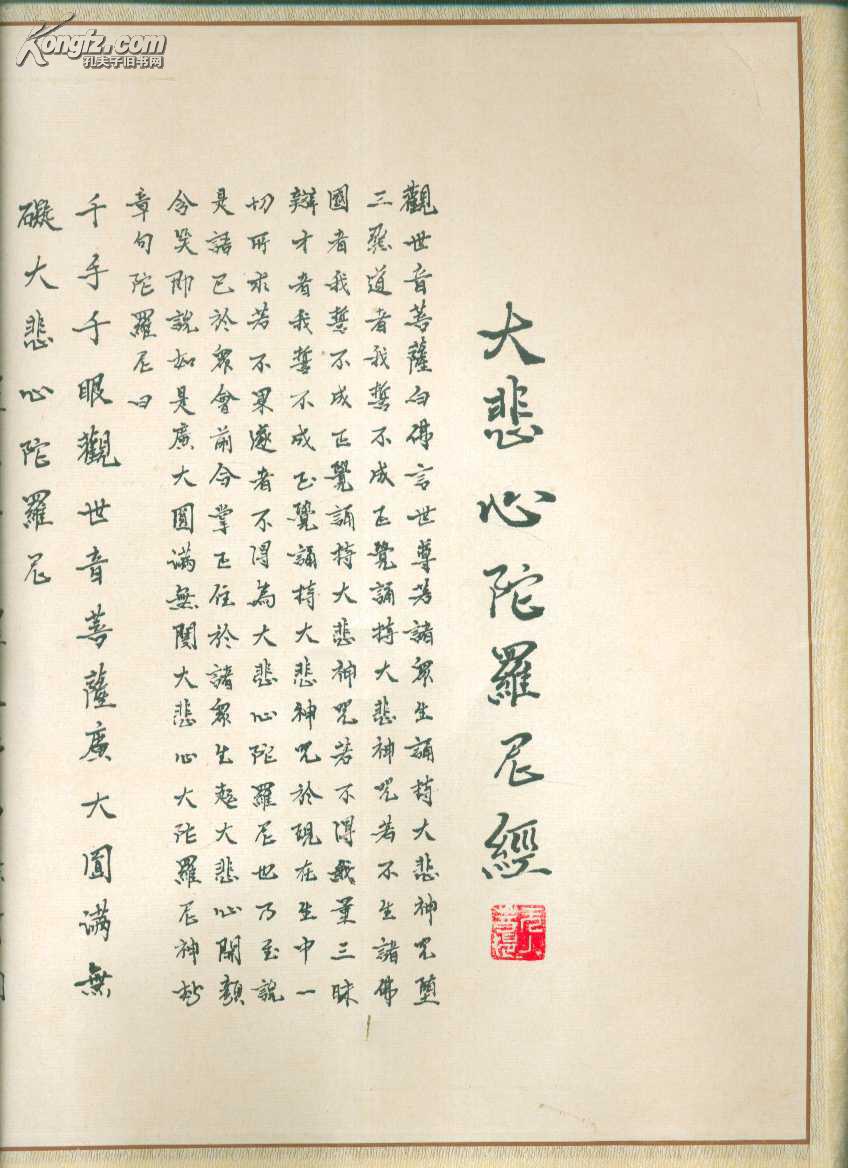 大悲心陀羅尼經
觀世音菩薩白佛言世尊若諸眾生誦持大悲神咒墮
三惡道者我誓不成正覺誦持大悲神咒若不生諸佛
國者我誓不成正覺誦持大悲神咒若不得無量三昧
辯才者我誓不成正覺誦持大悲神咒於現在生中一
切所求若不果遂者不得為大悲心陀羅尼也乃至說
是語已於眾會前合掌正住於諸眾生起大悲心開顏
含笑即說如是廣大圓滿無閡大悲心大陀羅尼神妙
章句陀羅尼曰
千手千眼觀世音菩薩廣大圓滿無
礙大悲心陀羅尼
Kongfz.com
孔夫子旧书网